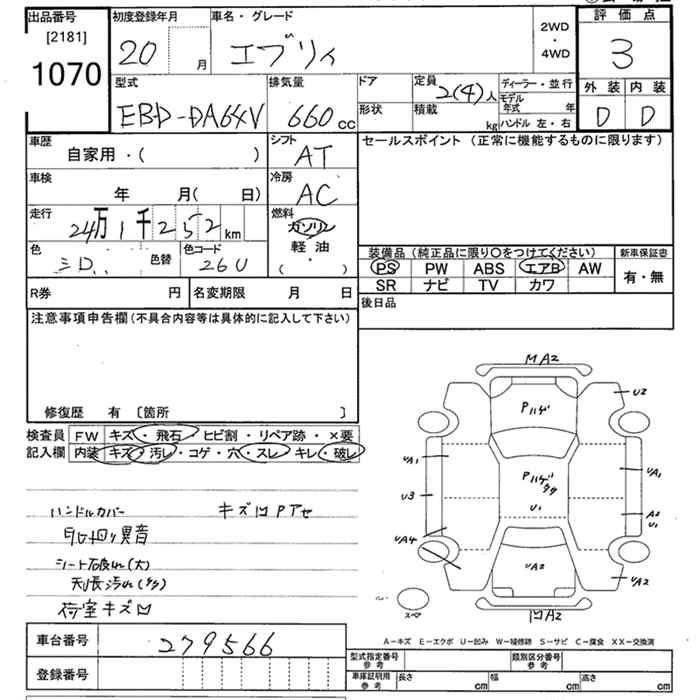 出品番号 初度登録年月 車名・グレード 2WD・4WD 評価点
[2181]
1070 20 月 エブリィ 3
型式 排気量 ドア 定員 2(4)人 ディーラー・並行 外装 内装
EBD-DA64V 660cc 形状 積載 kg モデル年式 年 D D
ハンドル 左・右
車歴 シフト セールスポイント(正常に機能するものに限ります)
自家用・( ) AT
車検 冷房
年 月( 日) AC
走行 燃料
24万1千252km ガソリン
軽油
( )
色 色替 色コード 装備品(純正品に限り○をつけてください) 新車保証書
26U PS PW ABS エアB AW 有・無
SR ナビ TV カワ
R券 円 名変期限 月 日 後日品
注意事項申告欄(不具合内容等は具体的に記入して下さい)
修復歴 有 〔箇所 〕
検査員 FW キズ・飛石・ヒビ割・リペア跡・×要
記入欄 内装 キズ・汚レ・コゲ・穴・スレ・キレ・破レ
ハンドルカバー キズ凹Pアセ
異音
シート破れ(大)
天張汚れ
荷室キズ凹
MA2
Pハゲ U2
UA1 Pハゲ UA1
U3 U1 A2
U1
UA4 UA2 UA2
スペア 凹A2
A−キズ E−エクボ U−凹み W−補修跡 S−サビ C−腐食 XX−交換済
車台番号 279566
型式指定番号 参考 類別区分番号 参考
登録番号 車庫証明用 参考 長さ cm 幅 cm 高さ cm